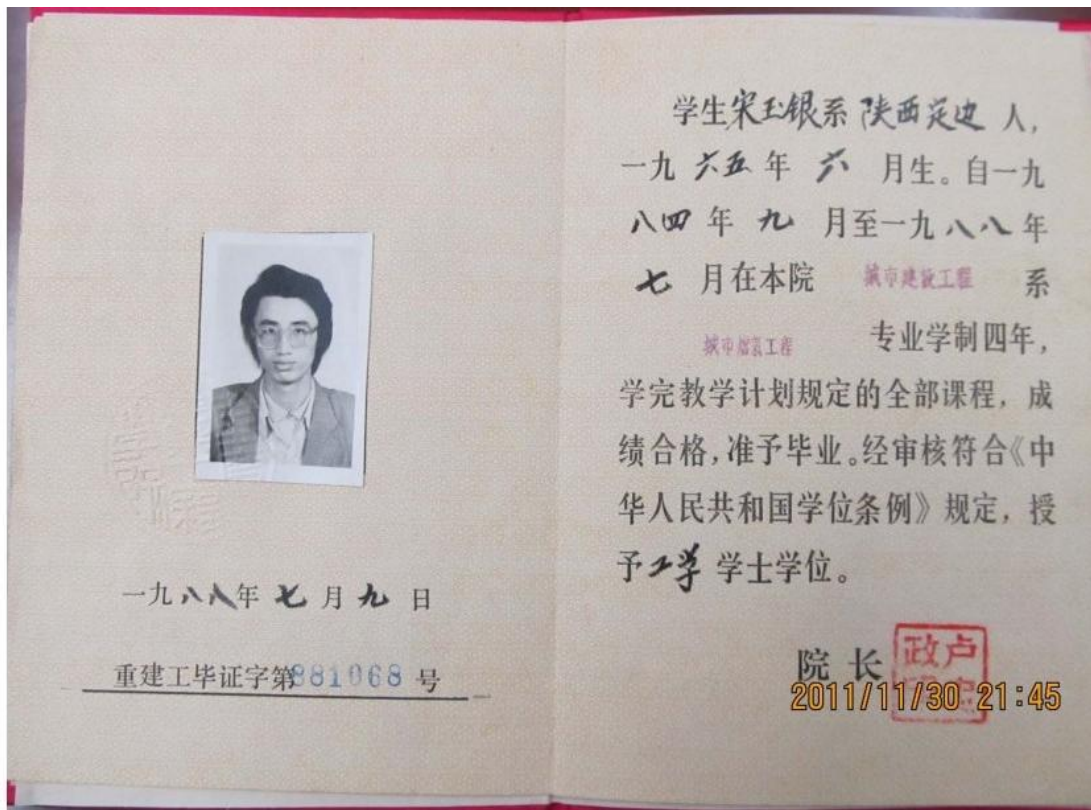 一九八八年七月九日
重建工毕证字第881068号
学生宋玉银系陕西定边人，
一九六五年六月生。自一九
八四年九月至一九八八年
七月在本院城市建设工程系
城市燃气工程专业学制四年，
学完教学计划规定的全部课程，成
绩合格，准予毕业。经审核符合《中
华人民共和国学位条例》规定，授
予工学学士学位。
院长
卢忠政
2011/11/30 21:45